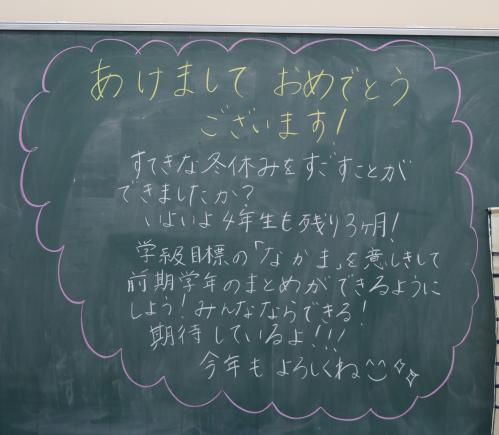 あけまして おめでとう
ございます!
すてきな冬休みをすごすことが
できましたか?
いよいよ4年生も残り3ヶ月!
学級目標の「なかま」を意しきして
前期学年のまとめができるように
しよう!みんなならできる!
期待しているよ!!!
今年もよろしくね^^